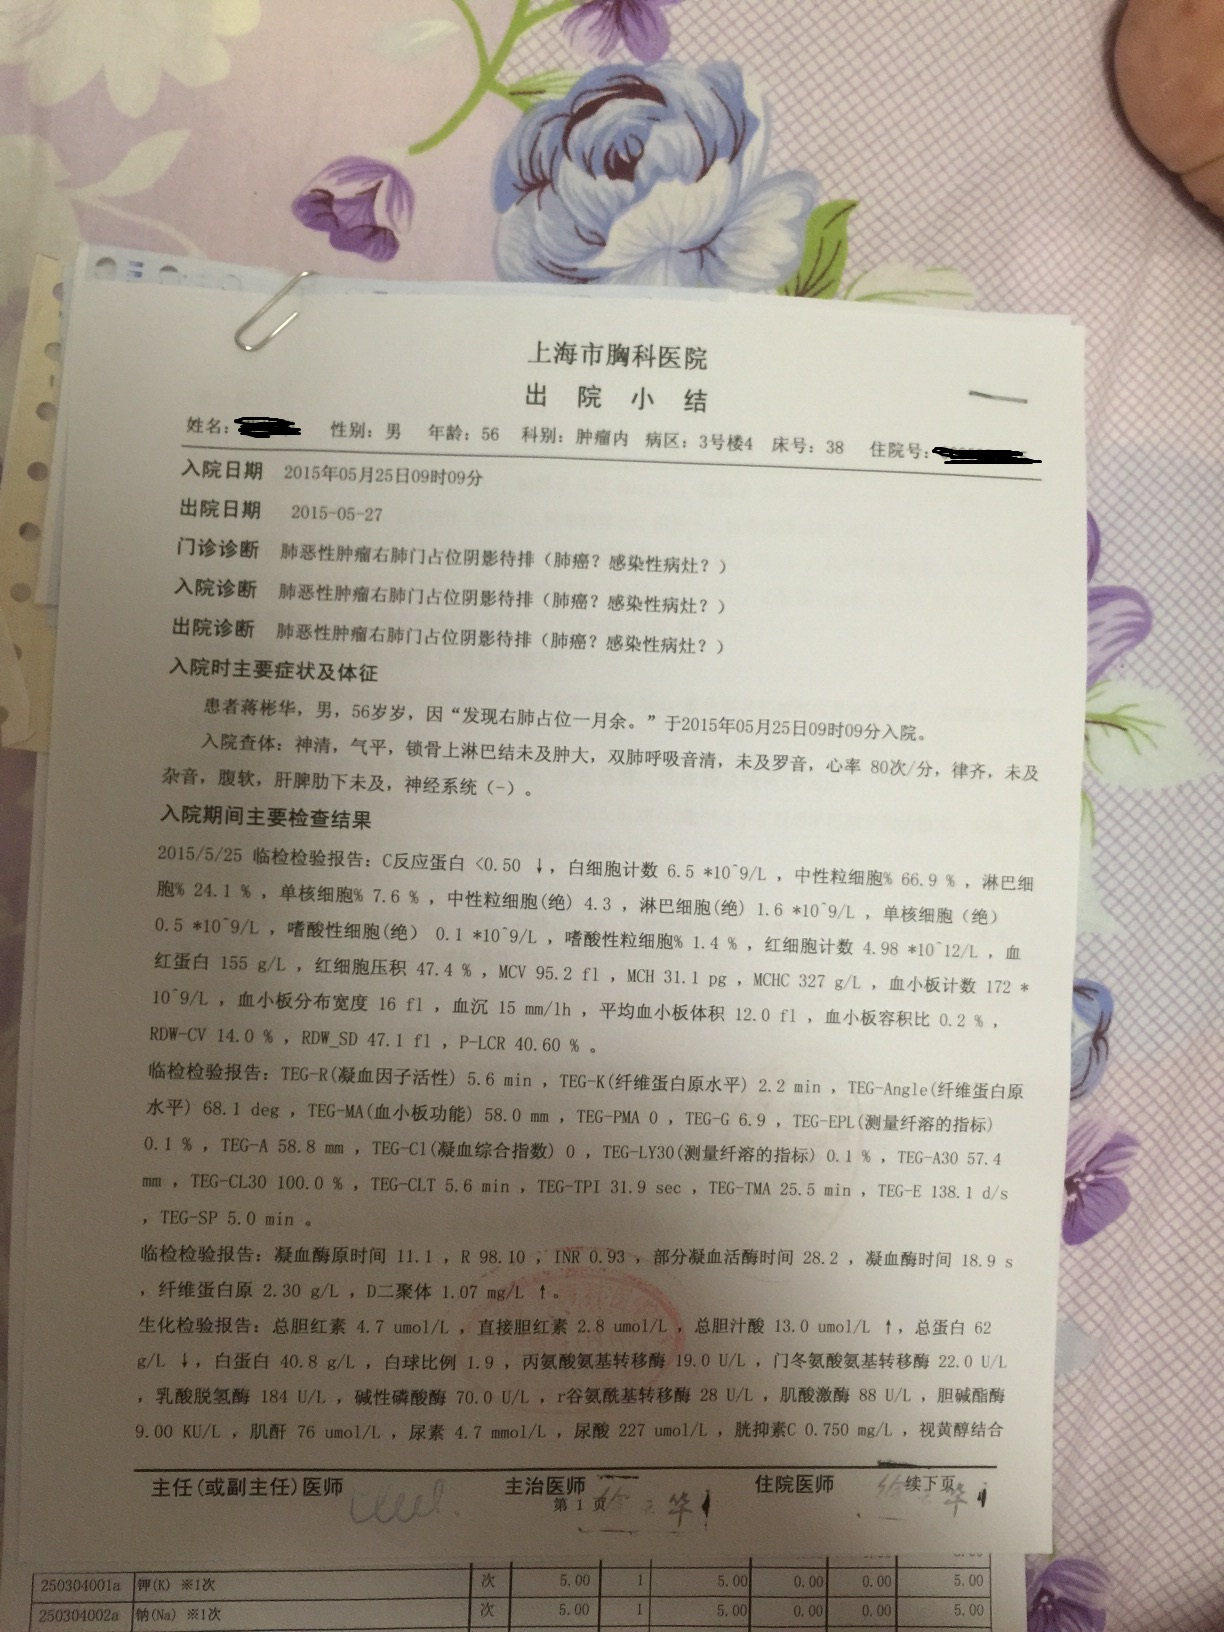 上海市胸科医院
出 院 小 结
姓名: 性别: 男 年龄: 56 科别: 肿瘤内 病区: 3号楼4 床号: 38 住院号:
入院日期 2015年05月25日09时09分
出院日期 2015-05-27
门诊诊断 肺恶性肿瘤右肺门占位阴影待排（肺癌？感染性病灶？）
入院诊断 肺恶性肿瘤右肺门占位阴影待排（肺癌？感染性病灶？）
出院诊断 肺恶性肿瘤右肺门占位阴影待排（肺癌？感染性病灶？）
入院时主要症状及体征
患者蒋彬华，男，56岁岁，因“发现右肺占位一月余。”于2015年05月25日09时09分入院。
入院查体：神清，气平，锁骨上淋巴结未及肿大，双肺呼吸音清，未及罗音，心率 80次/分，律齐，未及
杂音，腹软，肝脾肋下未及，神经系统（-）。
入院期间主要检查结果
2015/5/25 临检检验报告：C反应蛋白 <0.50 ↓，白细胞计数 6.5 *10^9/L ，中性粒细胞% 66.9 % ，淋巴细
胞% 24.1 % ，单核细胞% 7.6 % ，中性粒细胞(绝) 4.3 ，淋巴细胞(绝) 1.6 *10^9/L ，单核细胞（绝）
0.5 *10^9/L ，嗜酸性细胞(绝） 0.1 *10^9/L ，嗜酸性粒细胞% 1.4 % ，红细胞计数 4.98 *10^12/L ，血
红蛋白 155 g/L ，红细胞压积 47.4 % ，MCV 95.2 fl ，MCH 31.1 pg ，MCHC 327 g/L ，血小板计数 172 *
10^9/L ，血小板分布宽度 16 fl ，血沉 15 mm/lh ，平均血小板体积 12.0 fl ，血小板容积比 0.2 % ，
RDW-CV 14.0 % ，RDW_SD 47.1 fl ，P-LCR 40.60 % 。
临检检验报告：TEG-R(凝血因子活性) 5.6 min ，TEG-K(纤维蛋白原水平) 2.2 min ，TEG-Angle(纤维蛋白原
水平) 68.1 deg ，TEG-MA(血小板功能) 58.0 mm ，TEG-PMA 0 ，TEG-G 6.9 ，TEG-EPL(测量纤溶的指标)
0.1 % ，TEG-A 58.8 mm ，TEG-Cl(凝血综合指数) 0 ，TEG-LY30(测量纤溶的指标) 0.1 % ，TEG-A30 57.4
mm ，TEG-CL30 100.0 % ，TEG-CLT 5.6 min ，TEG-TPI 31.9 sec ，TEG-TMA 25.5 min ，TEG-E 138.1 d/s
，TEG-SP 5.0 min 。
临检检验报告：凝血酶原时间 11.1 ，R 98.10 ，INR 0.93 ，部分凝血活酶时间 28.2 ，凝血酶时间 18.9 s
，纤维蛋白原 2.30 g/L ，D二聚体 1.07 mg/L ↑。
生化检验报告：总胆红素 4.7 umol/L ，直接胆红素 2.8 umol/L ，总胆汁酸 13.0 umol/L ↑，总蛋白 62
g/L ↓，白蛋白 40.8 g/L ，白球比例 1.9 ，丙氨酸氨基转移酶 19.0 U/L ，门冬氨酸氨基转移酶 22.0 U/L
，乳酸脱氢酶 184 U/L ，碱性磷酸酶 70.0 U/L ，r谷氨酰基转移酶 28 U/L ，肌酸激酶 88 U/L ，胆碱酯酶
9.00 KU/L ，肌酐 76 umol/L ，尿素 4.7 mmol/L ，尿酸 227 umol/L ，胱抑素C 0.750 mg/L ，视黄醇结合
主任(或副主任)医师 主治医师 住院医师 续下页
第 1 页
250304001a 钾(K) ※1次 次 5.00 1 5.00 0.00 0.00 5.00
250304002a 钠(Na) ※1次 次 5.00 1 5.00 0.00 0.00 5.00